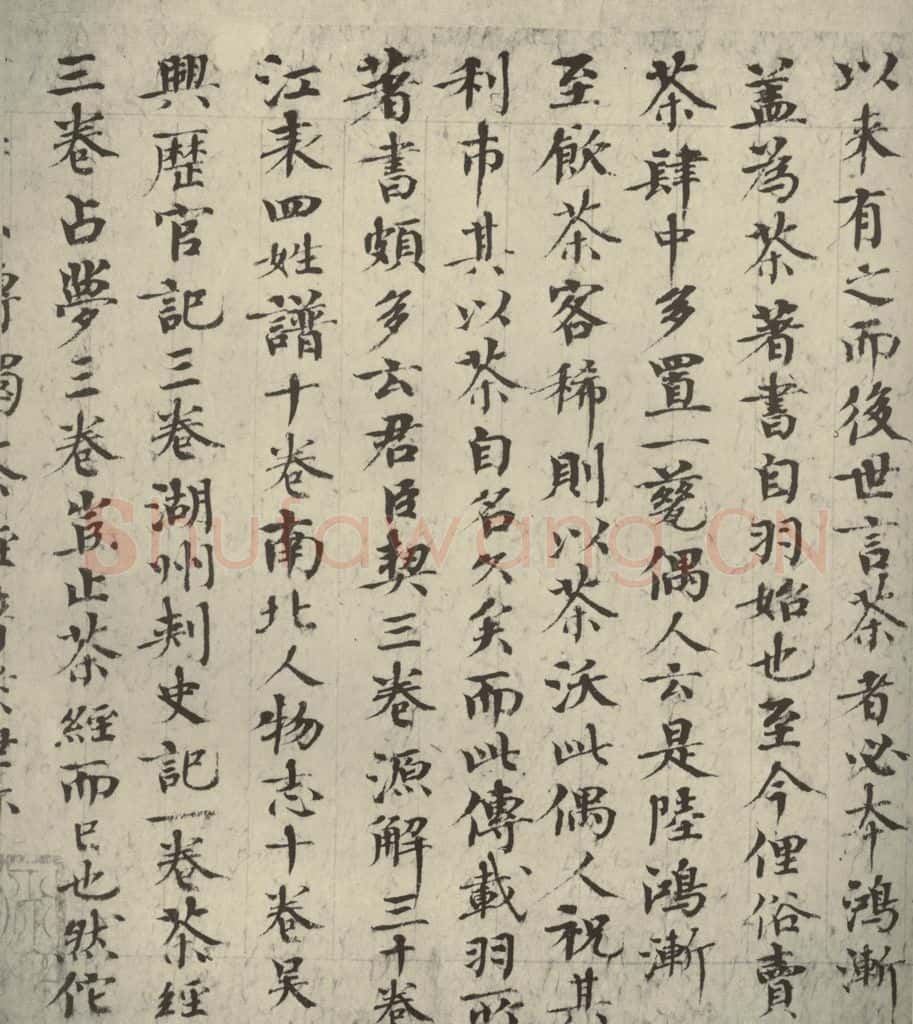 以来有之而後世言茶者必本鴻漸
盖為茶著書自羽始也至今俚俗賣
茶肆中多置一甆偶人云是陸鴻漸
至飲茶客稀則以茶沃此偶人祝其
利市其以茶自名久矣而此傳載羽所
著書頗多云君臣契三卷源解三十卷
江表四姓譜十卷南北人物志十卷吴
興歴官記三卷湖州刾史記一卷茶經
三卷占夢三卷豈止茶經而已也然佗
傳獨茶經世尔
Shufawang.CN